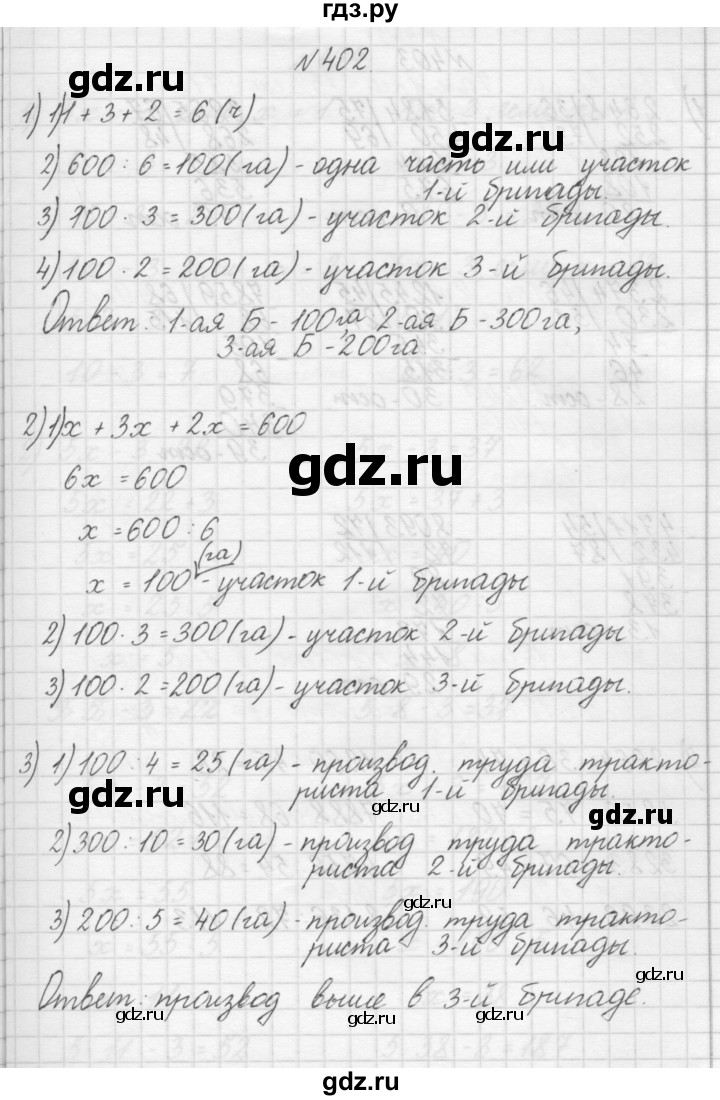 гдз.ру
№402
gdz.ru
1) 1) 1 + 3 + 2 = 6 (ч)
2) 600 : 6 = 100 (га) - одна часть или участок
1-й бригады.
3) 100 · 3 = 300 (га) - участок 2-й бригады.
4) 100 · 2 = 200 (га) - участок 3-й бригады.
Ответ: 1-ая Б - 100га, 2-ая Б - 300га,
3-ая Б - 200га.
2) 1) x + 3x + 2x = 600
gdz.ru
6x = 600
x = 600 : 6
x = 100 (га) - участок 1-й бригады
2) 100 · 3 = 300 (га) - участок 2-й бригады
3) 100 · 2 = 200 (га) - участок 3-й бригады.
3) 1) 100 : 4 = 25 (га) - производ. труда тракто-
риста 1-й бригады.
gdz.ru
gdz.ru
gdz.ru
2) 300 : 10 = 30 (га) - производ труда тракто-
риста 2-й бригады.
gdz.ru
gdz.ru
3) 200 : 5 = 40 (га) - производ. труда тракто-
риста 3-й бригады.
gdz.ru
gdz.ru
Ответ: производ выше в 3-й бригаде.
gdz.ru
gdz.ru
gdz.ru
gdz.ru